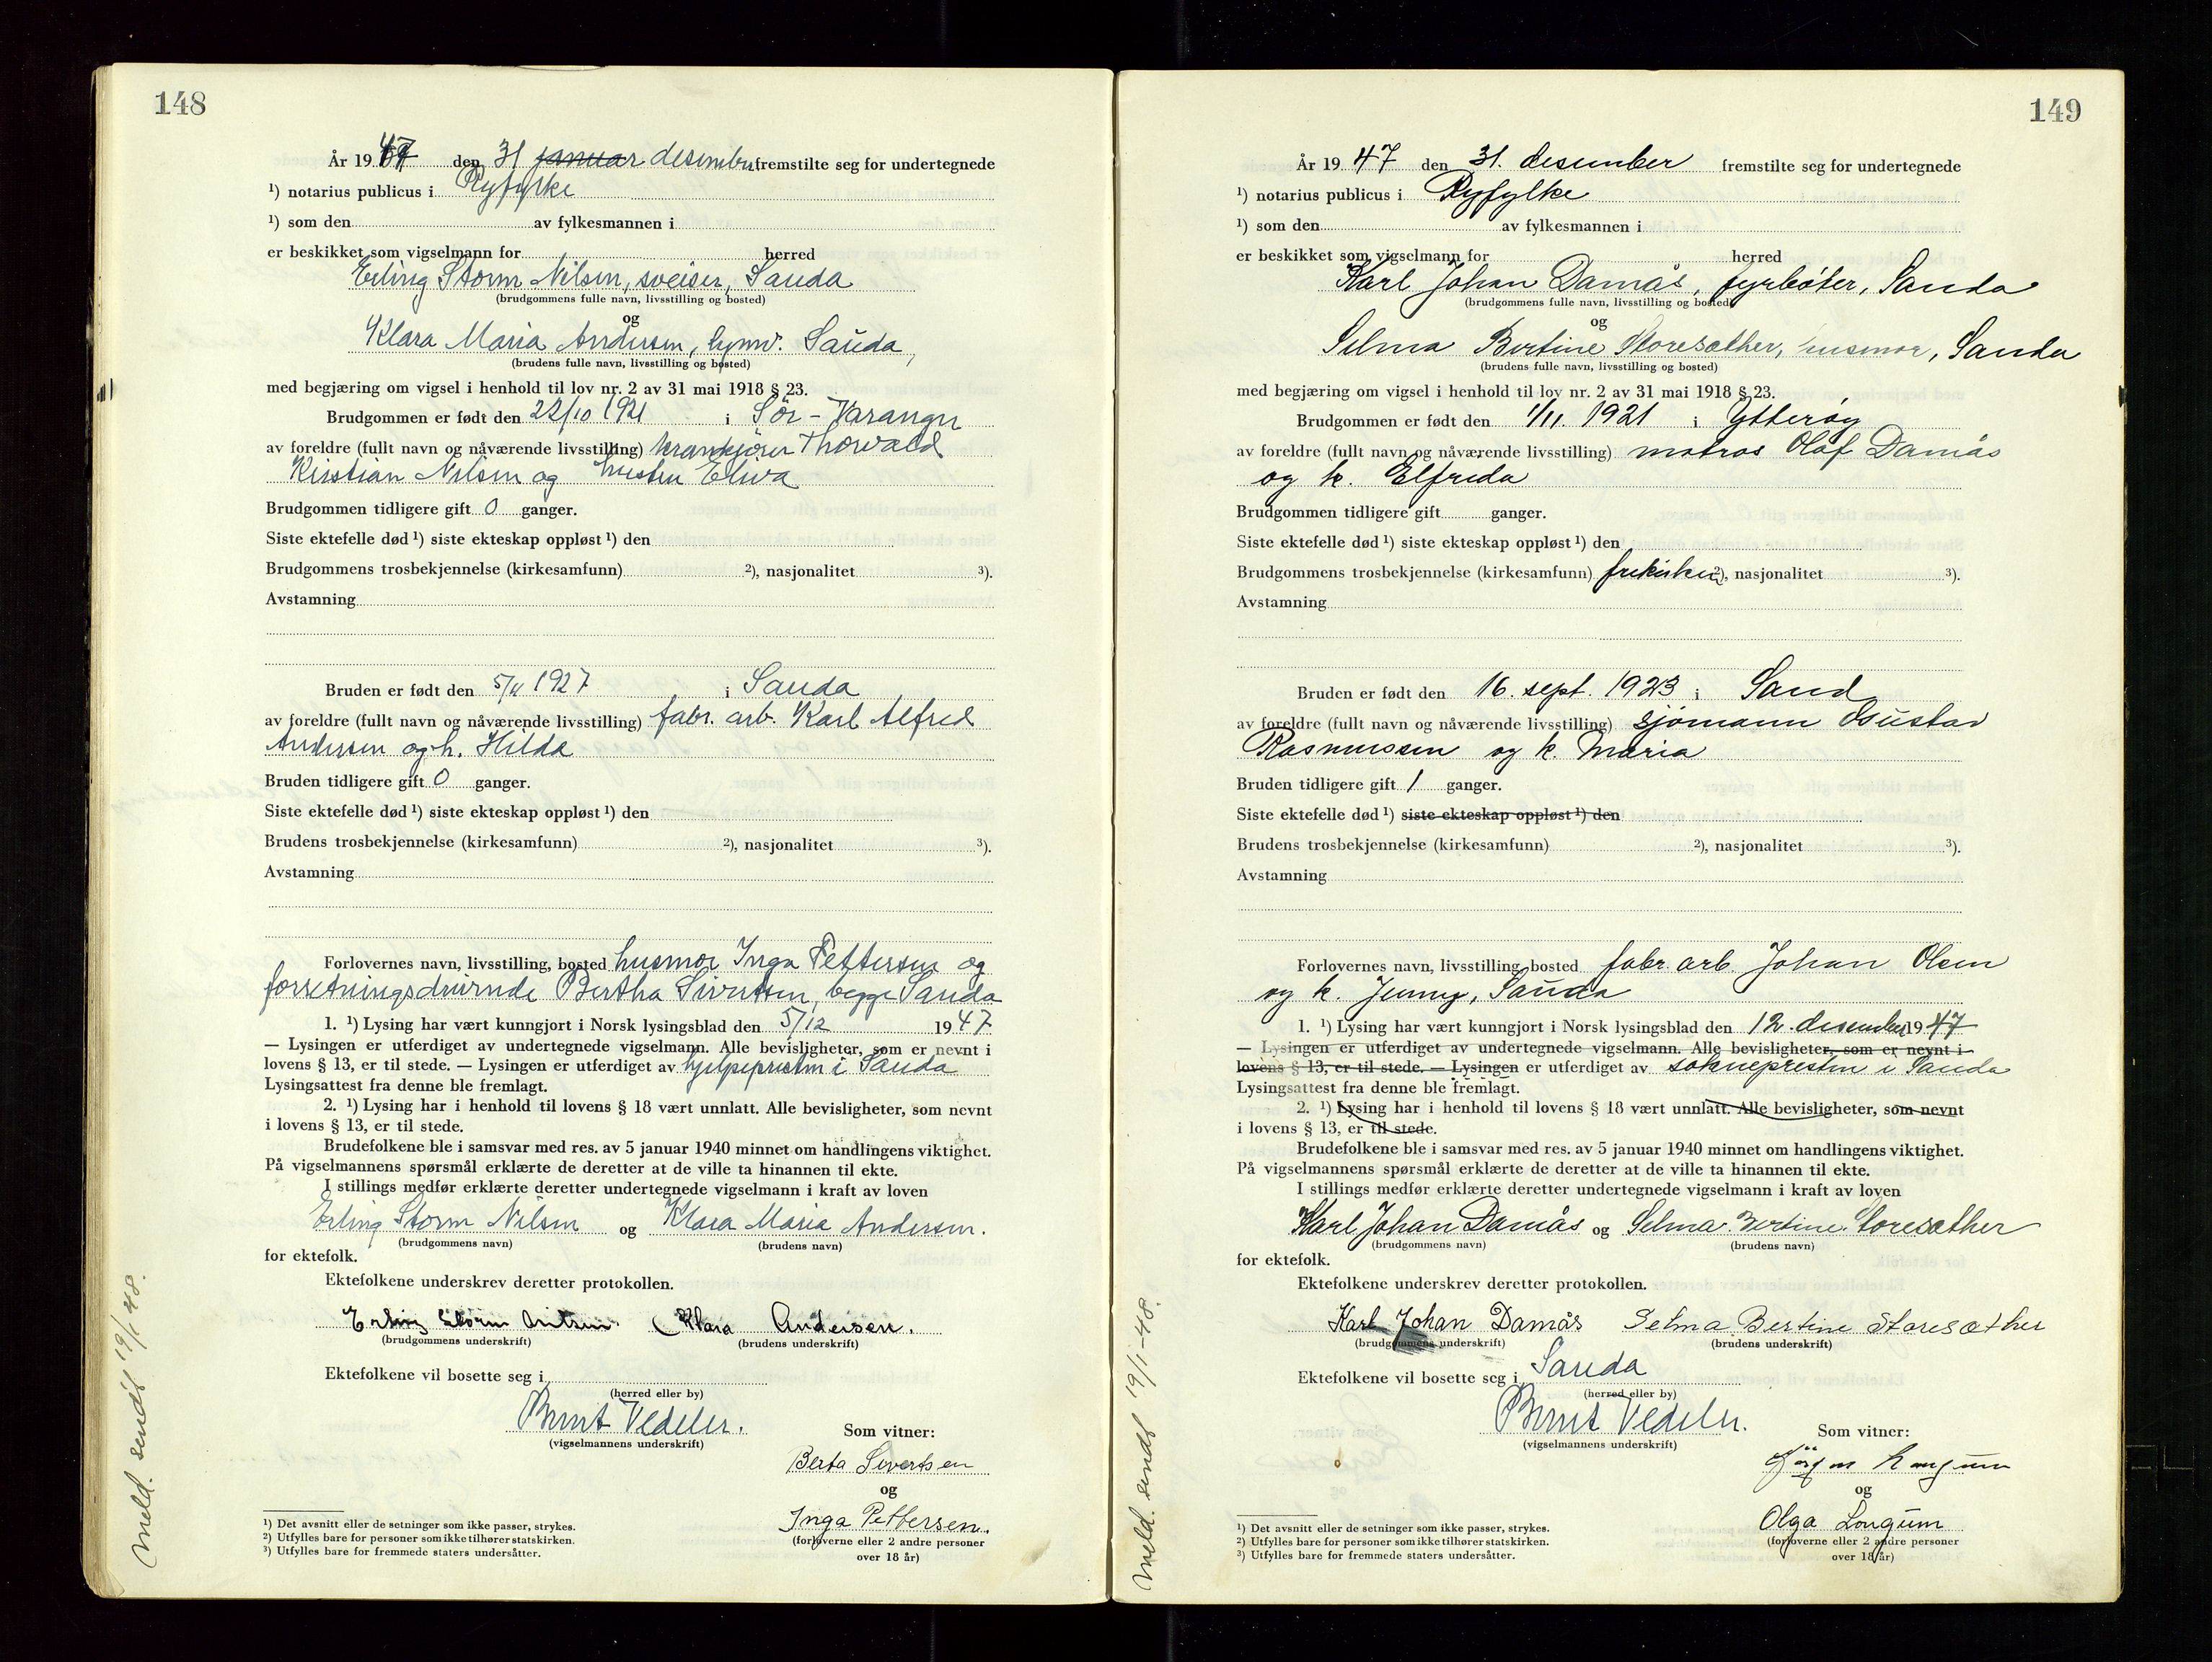 148
År 19 47 den 31 januar desember fremstilte seg for undertegnede
¹) notarius publicus i Ryfylke
¹) som den av fylkesmannen i
er beskikket som vigselmann for herred
Erling Storm Nilsen, sveiser, Sauda
(brudgommens fulle navn, livsstilling og bosted)
og
Klara Maria Andersen, hjemv. Sauda,
(brudens fulle navn, livsstilling og bosted)
med begjæring om vigsel i henhold til lov nr. 2 av 31 mai 1918 § 23.
Brudgommen er født den 22/10 1921 i Sör-Varanger
av foreldre (fullt navn og nåværende livsstilling) krankjører Thorvald
Kristian Nilsen og hustru Elva
Brudgommen tidligere gift 0 ganger.
Siste ektefelle død ¹) siste ekteskap oppløst ¹) den
Brudgommens trosbekjennelse (kirkesamfunn) ²), nasjonalitet ³).
Avstamning
Bruden er født den 5/4 1927 i Sauda
av foreldre (fullt navn og nåværende livsstilling) fabr. arb. Karl Alfred
Andersen og h. Hilda
Bruden tidligere gift 0 ganger.
Siste ektefelle død ¹) siste ekteskap oppløst ¹) den
Brudens trosbekjennelse (kirkesamfunn) ²), nasjonalitet ³).
Avstamning
Forlovernes navn, livsstilling, bosted husmor Inga Pettersen og
forretningsdrivende Bertha Sivertsen, begge Sauda
1. ¹) Lysing har vært kunngjort i Norsk lysingsblad den 5/12 19 47
— Lysingen er utferdiget av undertegnede vigselmann. Alle bevisligheter, som er nevnt i
lovens § 13, er til stede. — Lysingen er utferdiget av hjelpepresten i Sauda
Lysingsattest fra denne ble fremlagt.
2. ¹) Lysing har i henhold til lovens § 18 vært unnlatt. Alle bevisligheter, som nevnt
i lovens § 13, er til stede.
Brudefolkene ble i samsvar med res. av 5 januar 1940 minnet om handlingens viktighet.
På vigselmannens spørsmål erklærte de deretter at de ville ta hinannen til ekte.
I stillings medfør erklærte deretter undertegnede vigselmann i kraft av loven
Erling Storm Nilsen og Klara Maria Andersen.
(brudgommens navn) (brudens navn)
for ektefolk.
Ektefolkene underskrev deretter protokollen.
Erling Storm Nilsen Klara Andersen.
(brudgommens underskrift) (brudens underskrift)
Ektefolkene vil bosette seg i
(herred eller by)
Bernt Vedeler.
(vigselmannens underskrift)
Som vitner:
Berta Sivertsen
og
Inga Pettersen.
(forloverne eller 2 andre personer
over 18 år)
¹) Det avsnitt eller de setninger som ikke passer, strykes.
²) Utfylles bare for personer som ikke tilhører statskirken.
³) Utfylles bare for fremmede staters undersåtter.
Meld. sendt 19/1 48.
149
År 19 47 den 31. desember fremstilte seg for undertegnede
¹) notarius publicus i Ryfylke
¹) som den av fylkesmannen i
er beskikket som vigselmann for herred
Karl Johan Damås, fyrbøter, Sauda
(brudgommens fulle navn, livsstilling og bosted)
og
Selma Bertine Storesæther, husmor, Sauda
(brudens fulle navn, livsstilling og bosted)
med begjæring om vigsel i henhold til lov nr. 2 av 31 mai 1918 § 23.
Brudgommen er født den 1/11. 1921 i Ytterøy
av foreldre (fullt navn og nåværende livsstilling) matros Olaf Damås
og h. Elfreda
Brudgommen tidligere gift ganger.
Siste ektefelle død ¹) siste ekteskap oppløst ¹) den
Brudgommens trosbekjennelse (kirkesamfunn) frikirken ²), nasjonalitet ³).
Avstamning
Bruden er født den 16. sept. 1923 i Sand
av foreldre (fullt navn og nåværende livsstilling) sjømann Gustav
Rasmussen og h. Maria
Bruden tidligere gift 1 ganger.
Siste ektefelle død ¹) siste ekteskap oppløst ¹) den
Brudens trosbekjennelse (kirkesamfunn) ²), nasjonalitet ³).
Avstamning
Forlovernes navn, livsstilling, bosted fabr. arb. Johan Olsen
og h. Jenny, Sauda
1. ¹) Lysing har vært kunngjort i Norsk lysingsblad den 12. desember 19 47
— Lysingen er utferdiget av undertegnede vigselmann. Alle bevisligheter, som er nevnt i
lovens § 13, er til stede. — Lysingen er utferdiget av sokneprestn i Sauda
Lysingsattest fra denne ble fremlagt.
2. ¹) Lysing har i henhold til lovens § 18 vært unnlatt. Alle bevisligheter, som nevnt
i lovens § 13, er til stede.
Brudefolkene ble i samsvar med res. av 5 januar 1940 minnet om handlingens viktighet.
På vigselmannens spørsmål erklærte de deretter at de ville ta hinannen til ekte.
I stillings medfør erklærte deretter undertegnede vigselmann i kraft av loven
Karl Johan Damås og Selma Bertine Storesæther
(brudgommens navn) (brudens navn)
for ektefolk.
Ektefolkene underskrev deretter protokollen.
Karl Johan Damås Selma Bertine Storesæther
(brudgommens underskrift) (brudens underskrift)
Ektefolkene vil bosette seg i Sauda
(herred eller by)
Bernt Vedeler.
(vigselmannens underskrift)
Som vitner:
Jörgen Longum
og
Olga Longum
(forloverne eller 2 andre personer
over 18 år)
¹) Det avsnitt eller de setninger som ikke passer, strykes.
²) Utfylles bare for personer som ikke tilhører statskirken.
³) Utfylles bare for fremmede staters undersåtter.
Meld. sendt 19/1-48.